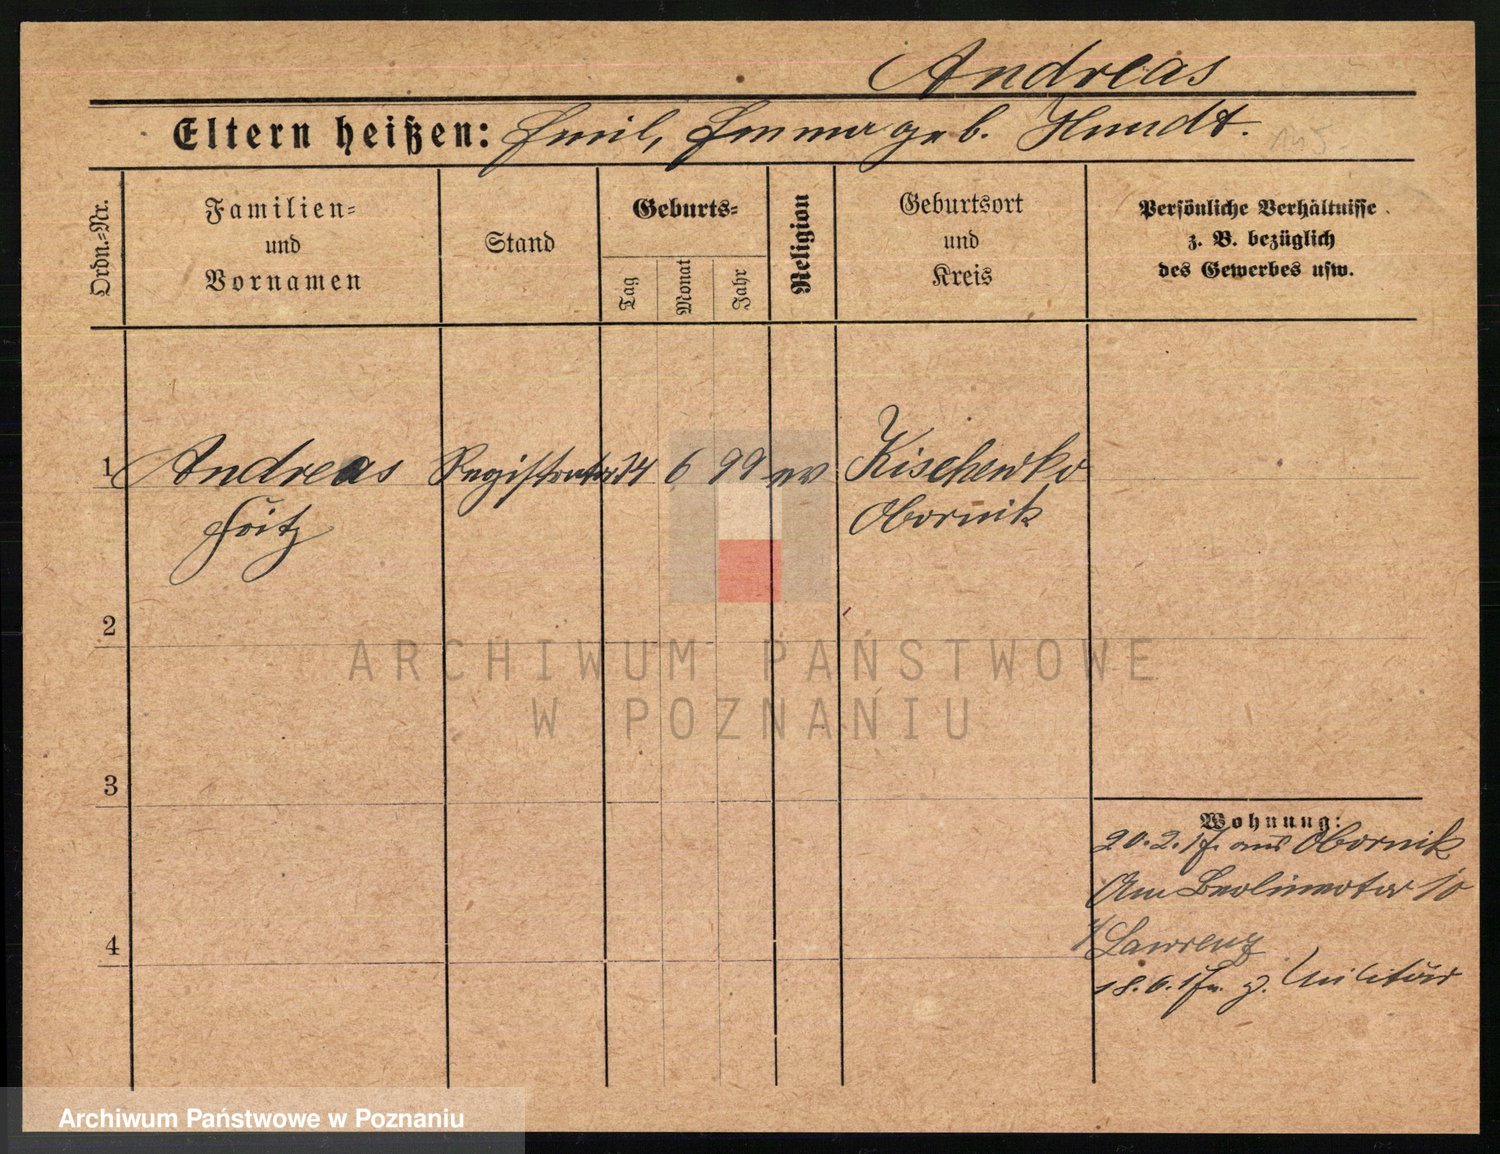 Andreas
Eltern heißen: Emil, Emma geb. Hundt.
145.
Ordn.-Nr.
Familien-
und
Vornamen
Stand
Geburts-
Tag
Monat
Jahr
Religion
Geburtsort
und
Kreis
Persönliche Verhältnisse
z. B. bezüglich
des Gewerbes usw.
1 Andreas Registrator 14 6 99 ev Kischewko
Fritz Obornik
2
ARCHIWUM PAŃSTWOWE
W POZNANIU
3
Wohnung:
20.2.17. aus Obornik
Am Berlinertor 10
b/ Lawrenz
4
18.6.17. z. Militär
Archiwum Państwowe w Poznaniu